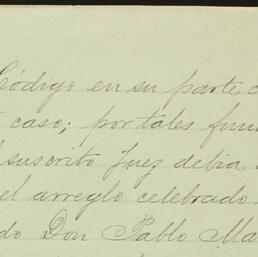 Código en su parte
caso; por tales
suscrito Juez debia
el arreglo celebrado
do Don Pablo Ma